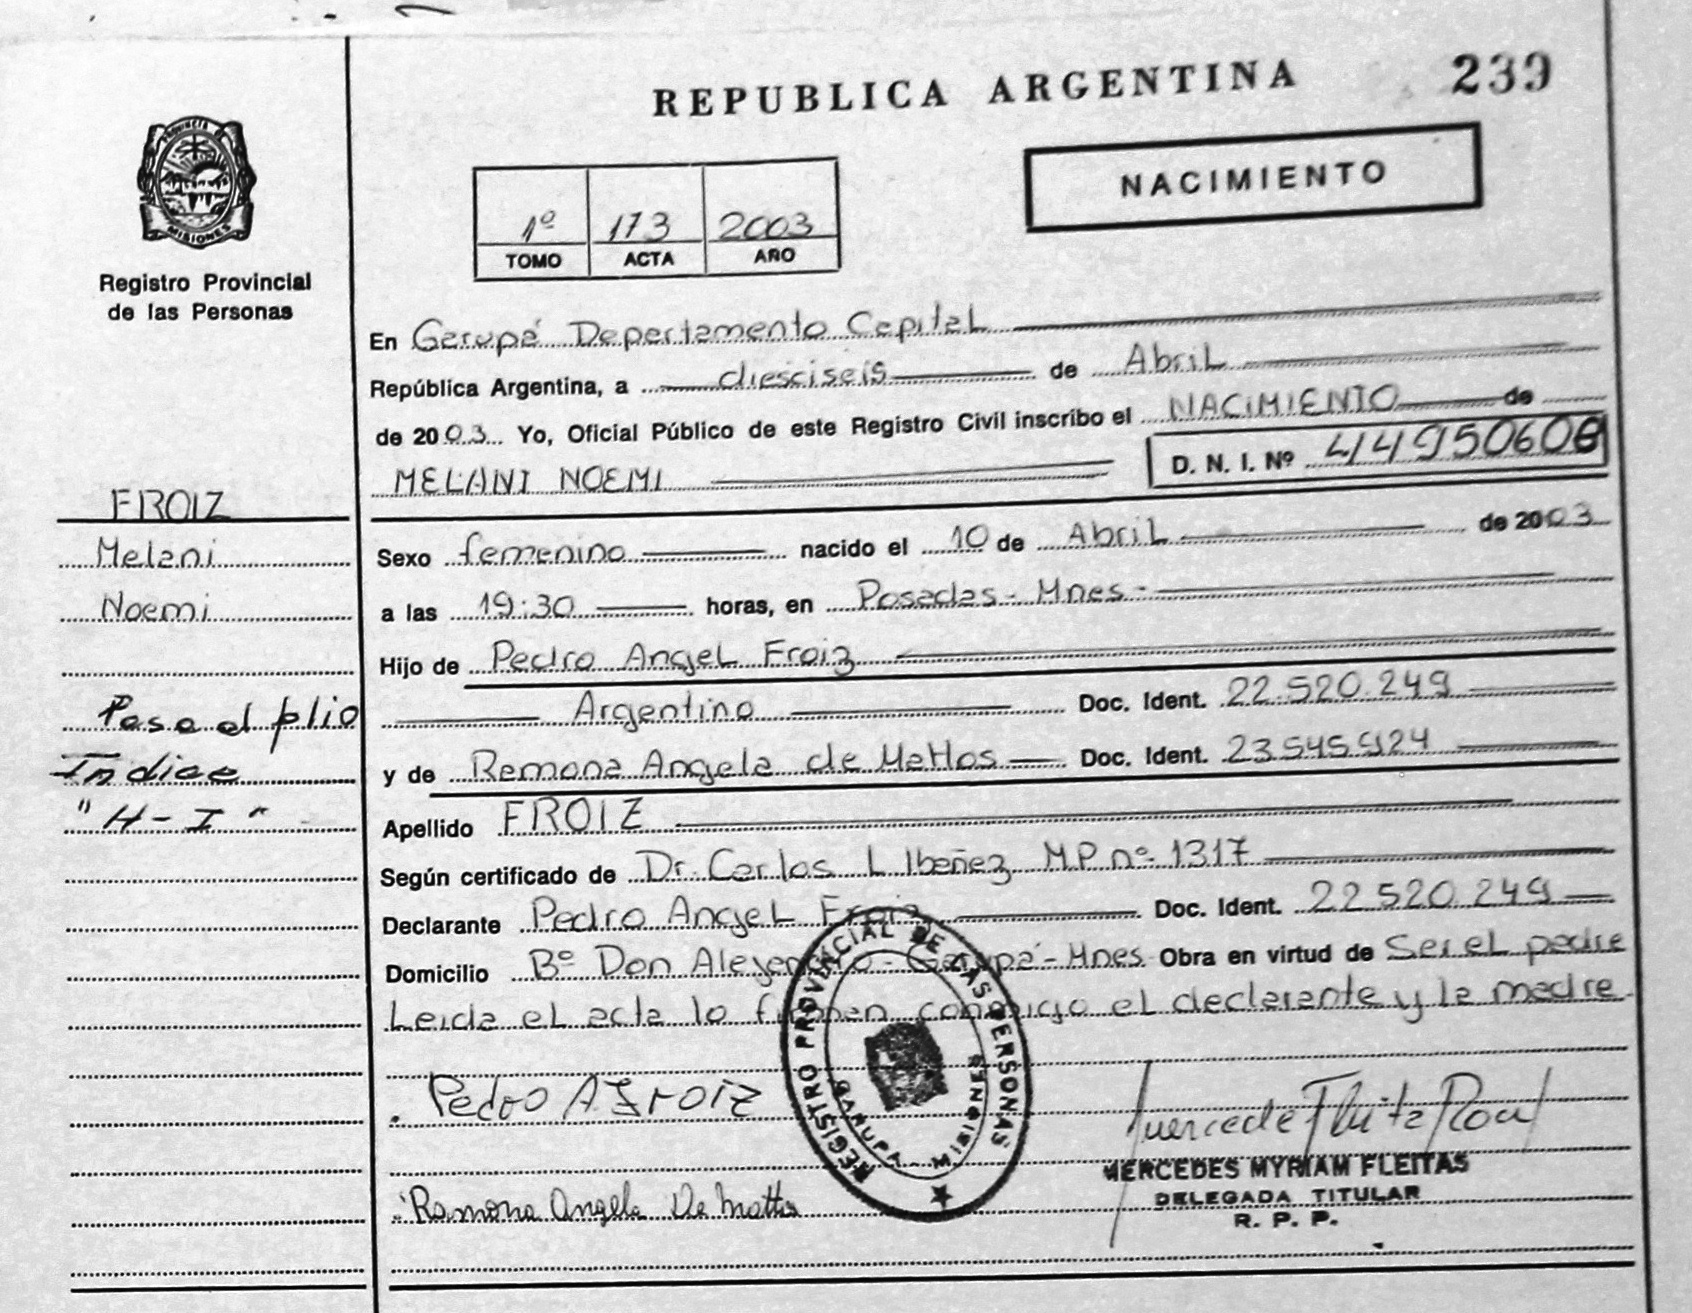 REPUBLICA ARGENTINA
239
PROVINCIA DE
MISIONES
Registro Provincial
de las Personas
1º 173 2003
TOMO ACTA AÑO
NACIMIENTO
En Garupá Departamento Capital
República Argentina, a diesciseis de Abril
de 2003 Yo, Oficial Público de este Registro Civil inscribo el NACIMIENTO de
MELANI NOEMI D. N. I. Nº 44950608
FROIZ
Melani
Noemi
Pase al folio
Indice
"H-I"
Sexo femenino nacido el 10 de Abril de 2003
a las 19:30 horas, en Posadas - Mnes -
Hijo de Pedro Angel Froiz
Argentino Doc. Ident. 22.520.249
y de Ramona Angela de Mattos Doc. Ident. 23.545.924
Apellido FROIZ
Según certificado de Dr. Carlos L Ibañez M.P. nº 1317
Declarante Pedro Angel Froiz Doc. Ident. 22.520.249
Domicilio Bº Don Alejandro - Garupá - Mnes Obra en virtud de Ser el padre
Leida el acta lo firman conmigo el declarante y la madre.
Pedro A Froiz
REGISTRO PROVINCIAL DE LAS PERSONAS
GARUPA - MISIONES
MERCEDES MYRIAM FLEITAS
DELEGADA TITULAR
R. P. P.
Ramona Angela De Mattos